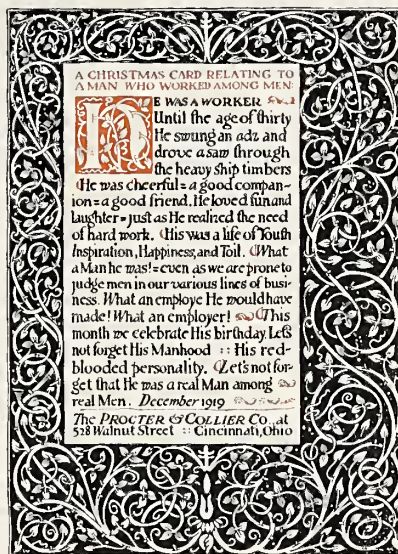 A CHRISTMAS CARD RELATING TO
A MAN WHO WORKED AMONG MEN:
HE WAS A WORKER
Until the age of thirty
He swung an adz and
drove a saw through
the heavy ship timbers
He was cheerful = a good compan-
ion = a good friend. He loved fun and
laughter = just as He realized the need
of hard work. His was a life of Youth
Inspiration, Happiness, and Toil. What
a Man he was! = even as we are prone to
judge men in our various lines of busi-
ness. What an employe He would have
made! What an employer! This
month we celebrate His birthday. Let's
not forget His Manhood :: His red-
blooded personality. Let's not for-
get that He was a real Man among
real Men. December 1919
The PROCTER & COLLIER Co., at
528 Walnut Street :: Cincinnati, Ohio